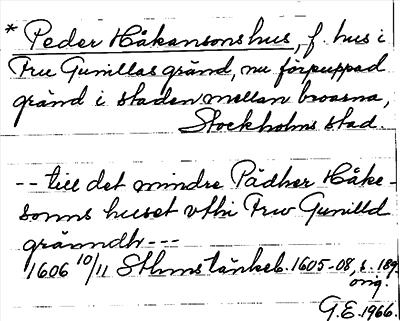 * Peder Håkansons hus, f. hus i
Fru Gunillas gränd, nu förpuppad
gränd i staden mellan broarna,
Stockholms stad.
-- till det mindre Pädher Håke-
sonns huset vthi Frw Gunilld
gränndh ---
1606 10/11 Sthms tänkeb. 1605-08, s. 189.
orig.
G.E. 1966.